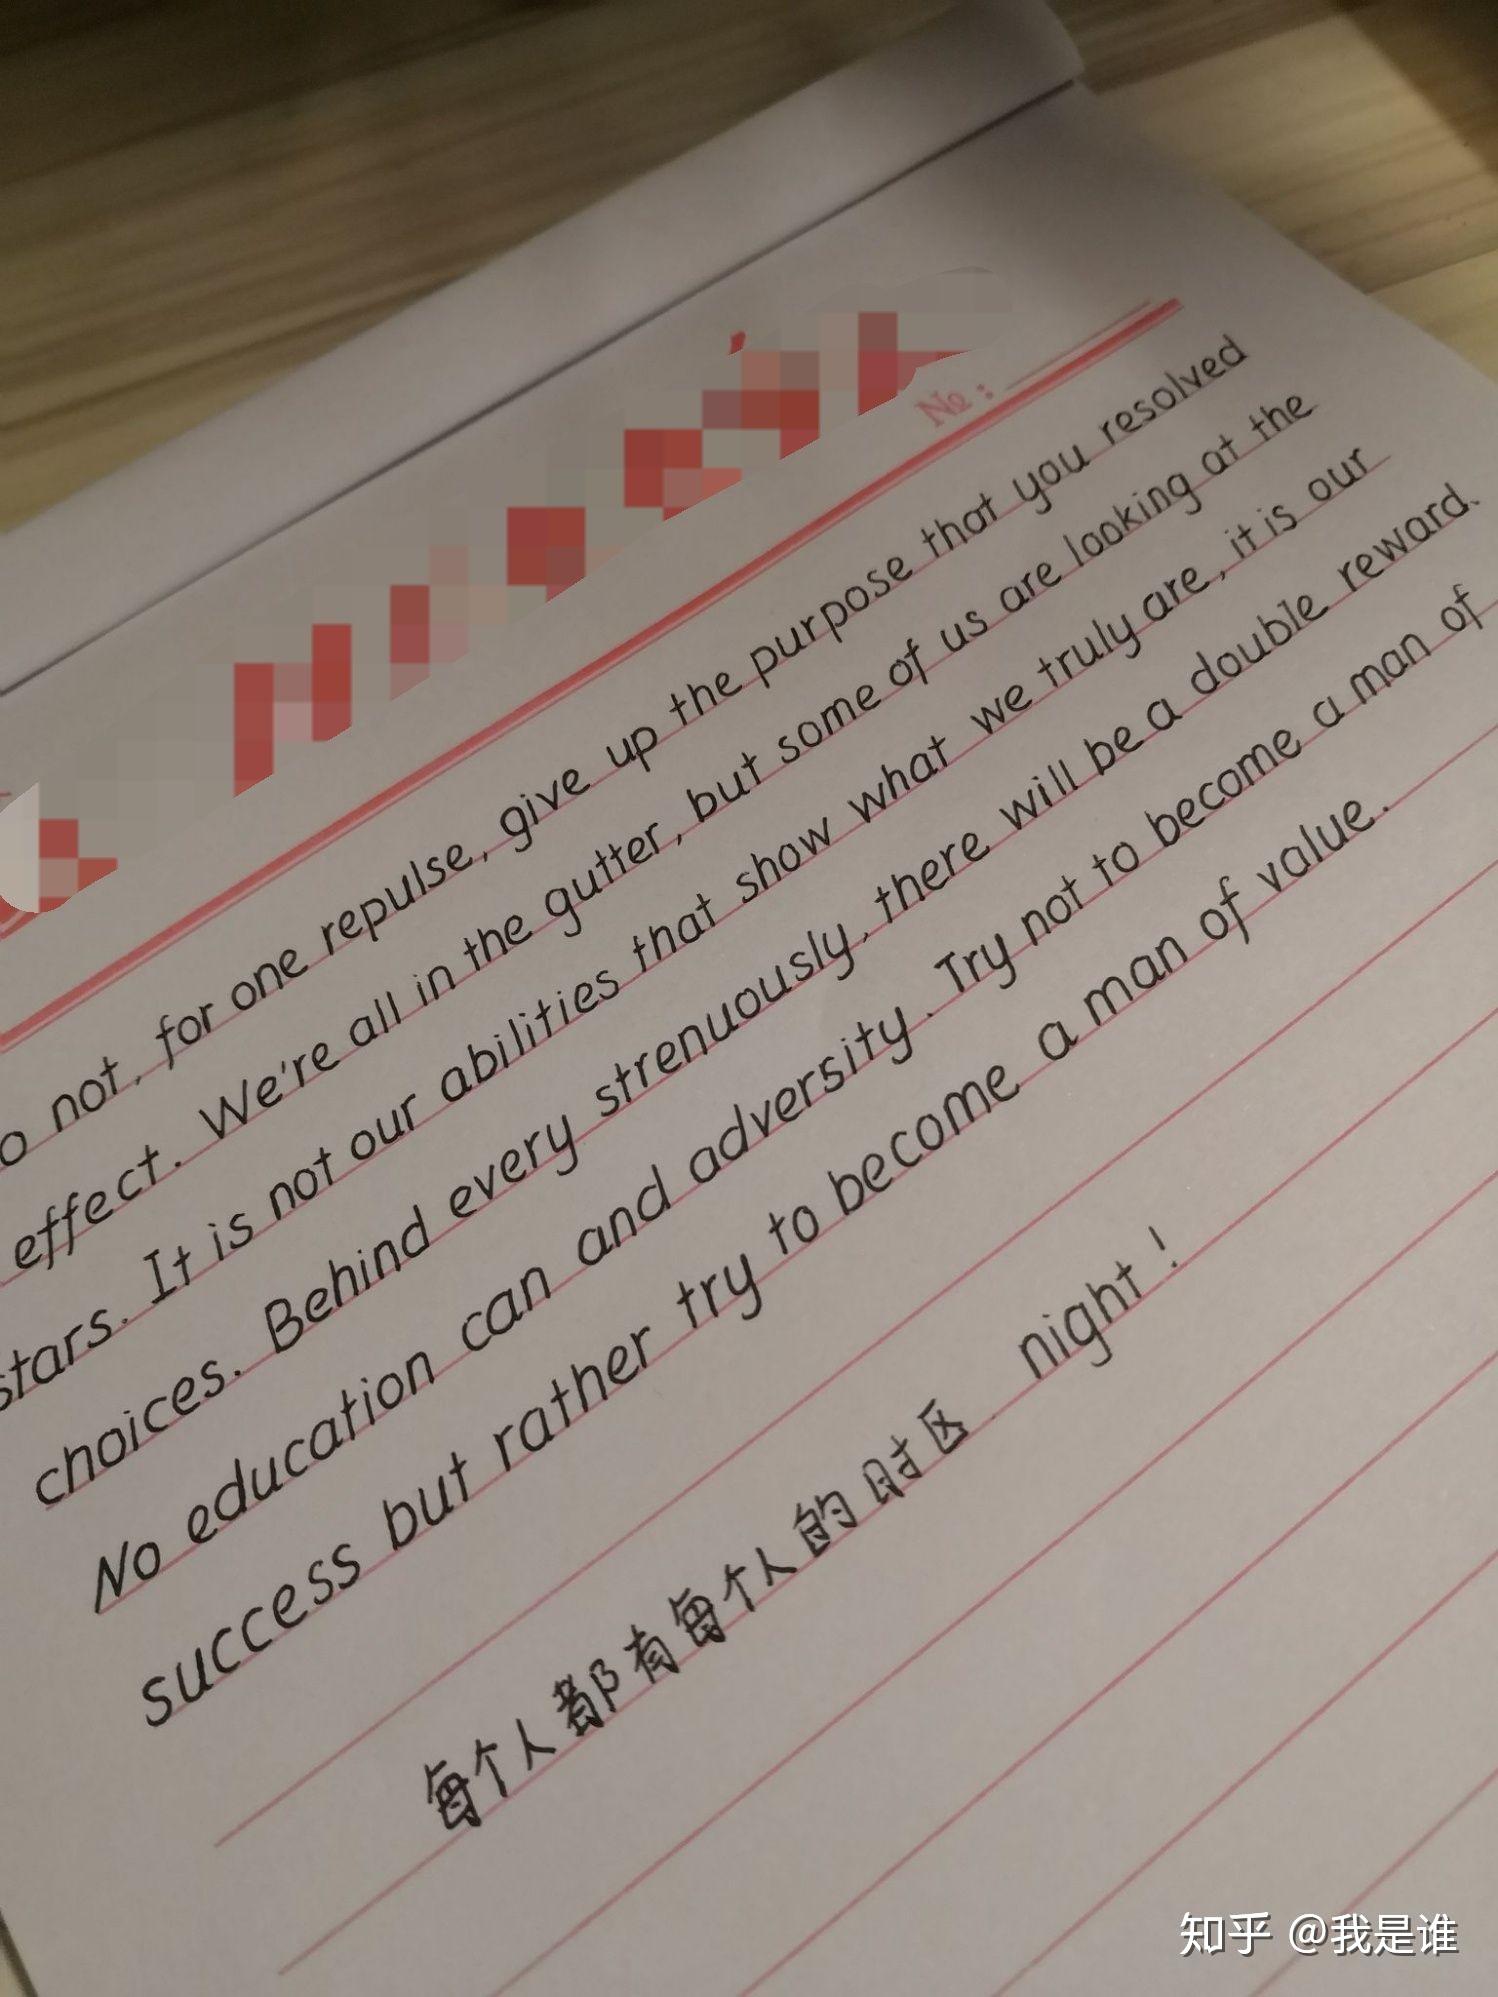 No:
o not, for one repulse, give up the purpose that you resolved
effect. We're all in the gutter, but some of us are looking at the
stars. It is not our abilities that show what we truly are, it is our
choices. Behind every strenuously, there will be a double reward.
No education can and adversity. Try not to become a man of
success but rather try to become a man of value.
每个人都有每个人的时区. night!
知乎 @我是谁